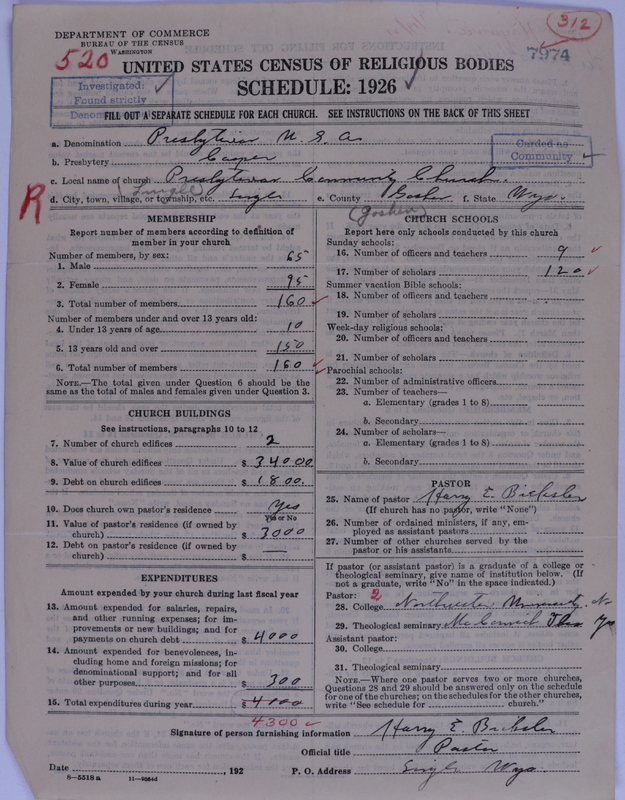 DEPARTMENT OF COMMERCE
BUREAU OF THE CENSUS
WASHINGTON
312
7974
520
UNITED STATES CENSUS OF RELIGIOUS BODIES
SCHEDULE: 1926
Investigated:
Found strictly
FILL OUT A SEPARATE SCHEDULE FOR EACH CHURCH. SEE INSTRUCTIONS ON THE BACK OF THIS SHEET
a. Denomination Presbyterian U. S. A.
b. Presbytery Casper
Carded as
Community
c. Local name of church Presbyterian Community Church.
(Lingle)
d. City, town, village, or township, etc. Lingle e. County Goshen f. State Wyo.
(Goshen)
R
MEMBERSHIP
Report number of members according to definition of
member in your church
Number of members, by sex:
1. Male 65
2. Female 95
3. Total number of members 160
Number of members under and over 13 years old:
4. Under 13 years of age 10
5. 13 years old and over 150
6. Total number of members 160
NOTE.—The total given under Question 6 should be the
same as the total of males and females given under Question 3.
CHURCH BUILDINGS
See instructions, paragraphs 10 to 12
7. Number of church edifices 2
8. Value of church edifices $ 34000
9. Debt on church edifices $ 1800.
10. Does church own pastor's residence Yes
Yes or No
11. Value of pastor's residence (if owned by
church) $ 3000
12. Debt on pastor's residence (if owned by
church) $ —
EXPENDITURES
Amount expended by your church during last fiscal year
13. Amount expended for salaries, repairs,
and other running expenses; for im-
provements or new buildings; and for
payments on church debt $ 4000
14. Amount expended for benevolences, in-
cluding home and foreign missions; for
denominational support; and for all
other purposes $ 300
15. Total expenditures during year $ 4000
4300
CHURCH SCHOOLS
Report here only schools conducted by this church
Sunday schools:
16. Number of officers and teachers 9
17. Number of scholars 120
Summer vacation Bible schools:
18. Number of officers and teachers
19. Number of scholars
Week-day religious schools:
20. Number of officers and teachers
21. Number of scholars
Parochial schools:
22. Number of administrative officers
23. Number of teachers—
a. Elementary (grades 1 to 8)
b. Secondary
24. Number of scholars—
a. Elementary (grades 1 to 8)
b. Secondary
PASTOR
25. Name of pastor Harry E. Bicksler
(If church has no pastor, write "None")
26. Number of ordained ministers, if any, em-
ployed as assistant pastors
27. Number of other churches served by the
pastor or his assistants
If pastor (or assistant pastor) is a graduate of a college or
theological seminary, give name of institution below. (If
not a graduate, write "No" in the space indicated.)
Pastor: 2
28. College Northwestern University No
29. Theological seminary McCormick Theo Yes
Assistant pastor:
30. College
31. Theological seminary
NOTE.—Where one pastor serves two or more churches,
Questions 28 and 29 should be answered only on the schedule
for one of the churches; on the schedules for the other churches,
write "See schedule for church."
Signature of person furnishing information Harry E. Bicksler
Official title Pastor
Date , 192 P. O. Address Lingle Wyo.
8—5518 a